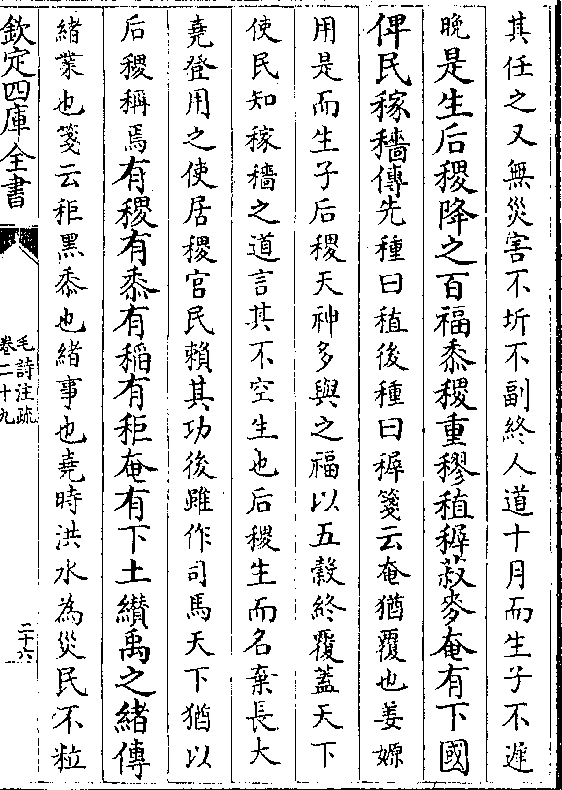 其任之又無災害不坼不副終人道十月而生子不遲
晩是生后稷降之百福黍稷重穋稙穉菽麥奄有下國
俾民稼穡傳先種曰稙後種曰穉箋云奄猶覆也姜嫄
用是而生子后稷天神多與之福以五穀終覆蓋天下
使民知稼穡之道言其不空生也后稷生而名棄長大
堯登用之使居稷官民賴其功後雖作司馬天下猶以
后稷稱焉有稷有黍有稻有秬奄有下土纘禹之緒傳
緒業也箋云秬黑黍也緒事也堯時洪水為災民不粒
欽定四庫全書
毛詩注疏
卷二十九
二十六